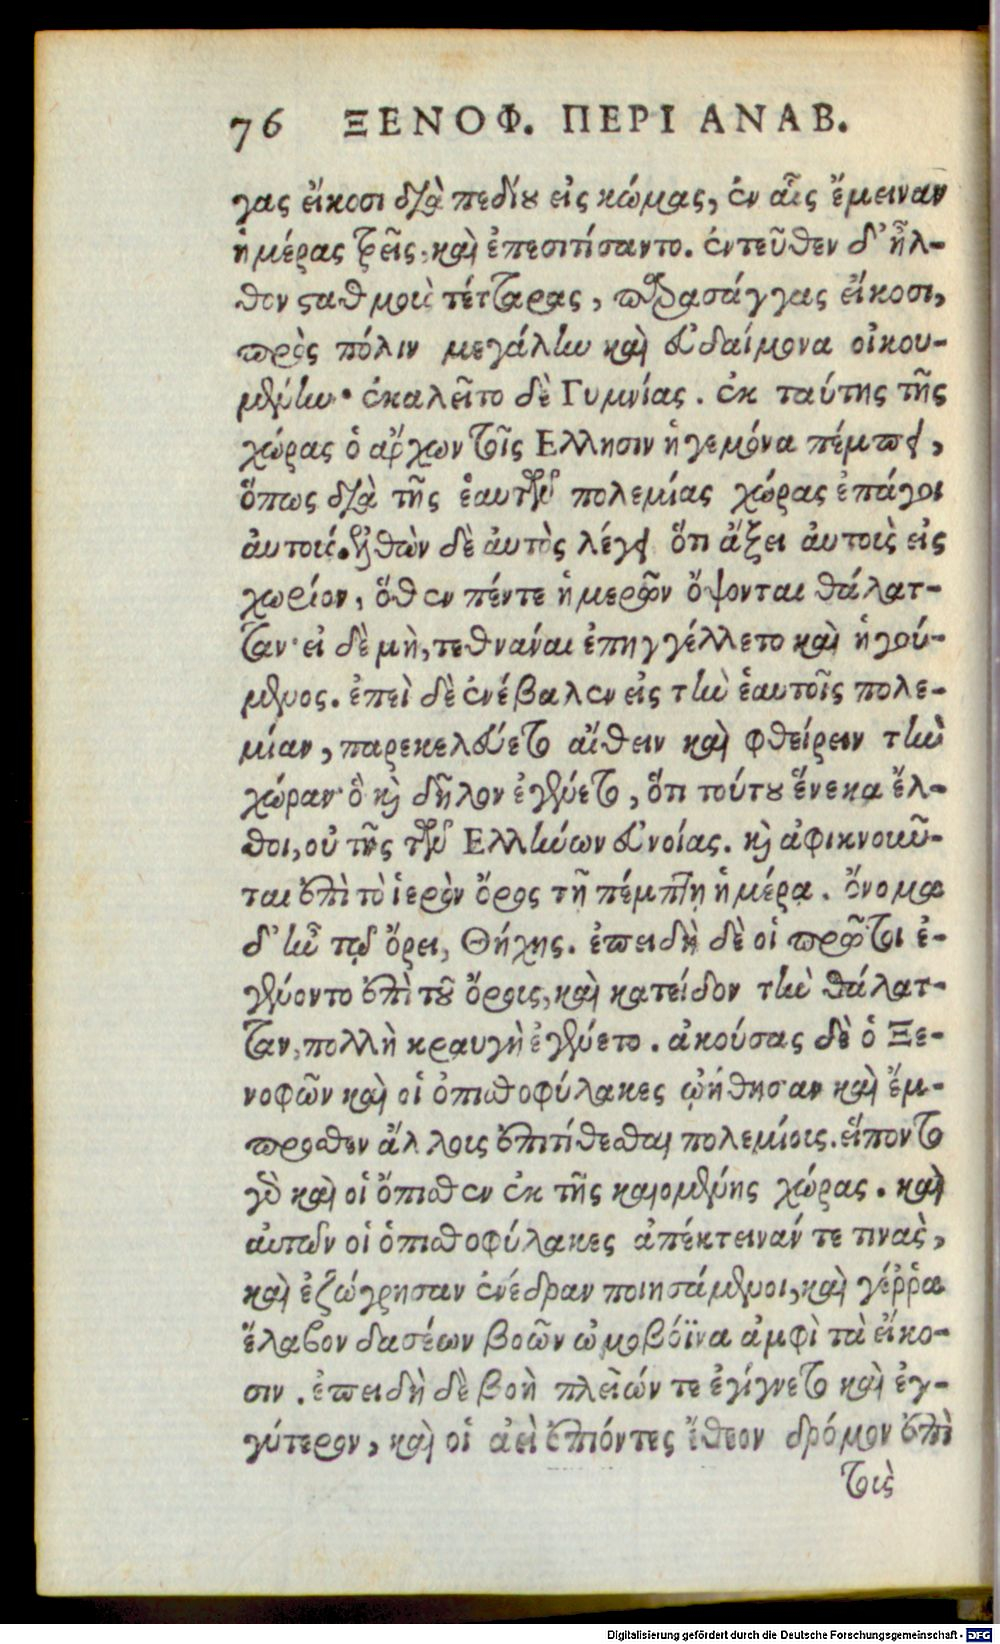 76 ΞΕΝΟΦ. ΠΕΡΙ ΑΝΑΒ.
γας εἴκοσι διὰ πεδίου εἰς κώμας, ἐν αἷς ἔμειναν
ἡμέρας τρεῖς, καὶ ἐπεσιτίσαντο. ἐντεῦθεν δ' ἦλ-
θον σταθμοὺς τέτταρας, παρασάγγας εἴκοσι,
πρὸς πόλιν μεγάλην καὶ εὐδαίμονα οἰκου-
μένην· ἐκαλεῖτο δὲ Γυμνίας. ἐκ ταύτης τῆς
χώρας ὁ ἄρχων τοῖς Ελλησιν ἡγεμόνα πέμπει,
ὅπως διὰ τῆς ἑαυτῶν πολεμίας χώρας ἐπάγοι
αὐτούς. ἐλθὼν δὲ αὐτὸς λέγει ὅτι ἄξει αὐτοὺς εἰς
χωρίον, ὅθεν πέντε ἡμερῶν ὄψονται θάλατ-
ταν· εἰ δὲ μὴ, τεθνάναι ἐπηγγέλλετο καὶ ἡγού-
μενος. ἐπεὶ δὲ ἐνέβαλεν εἰς τὴν ἑαυτοῖς πολε-
μίαν, παρεκελεύετο αἴθειν καὶ φθείρειν τὴν
χώραν· ὃ καὶ δῆλον ἐγένετο, ὅτι τούτου ἕνεκα ἔλ-
θοι, οὐ τῆς τῶν Ελλήνων εὐνοίας. καὶ ἀφικνοῦν-
ται ἐπὶ τὸ ἱερὸν ὄρος τῇ πέμπτῃ ἡμέρᾳ. ὄνομα
δ' ἦν τῷ ὄρει, Θήχης. ἐπειδὴ δὲ οἱ πρῶτοι ἐ-
γένοντο ἐπὶ τοῦ ὄρους, καὶ κατεῖδον τὴν θάλατ-
ταν, πολλὴ κραυγὴ ἐγένετο. ἀκούσας δὲ ὁ Ξε-
νοφῶν καὶ οἱ ὀπισθοφύλακες ᾠήθησαν καὶ ἔμ-
προσθεν ἄλλους ἐπιτίθεσθαι πολεμίους. εἵποντο
γὰρ καὶ οἱ ὄπισθεν ἐκ τῆς καιομένης χώρας. καὶ
αὐτῶν οἱ ὀπισθοφύλακες ἀπέκτεινάν τε τινὰς,
καὶ ἐζώγρησαν ἐνέδραν ποιησάμενοι, καὶ γέῤῥα
ἔλαβον δασέων βοῶν ὠμοβόϊνα ἀμφὶ τὰ εἴκο-
σιν. ἐπειδὴ δὲ βοὴ πλείων τε ἐγίγνετο καὶ ἐγ-
γύτερον, καὶ οἱ ἀεὶ ἐπιόντες ἔθεον δρόμον ἐπὶ
τοὺς
Digitalisierung gefördert durch die Deutsche Forschungsgemeinschaft - DFG